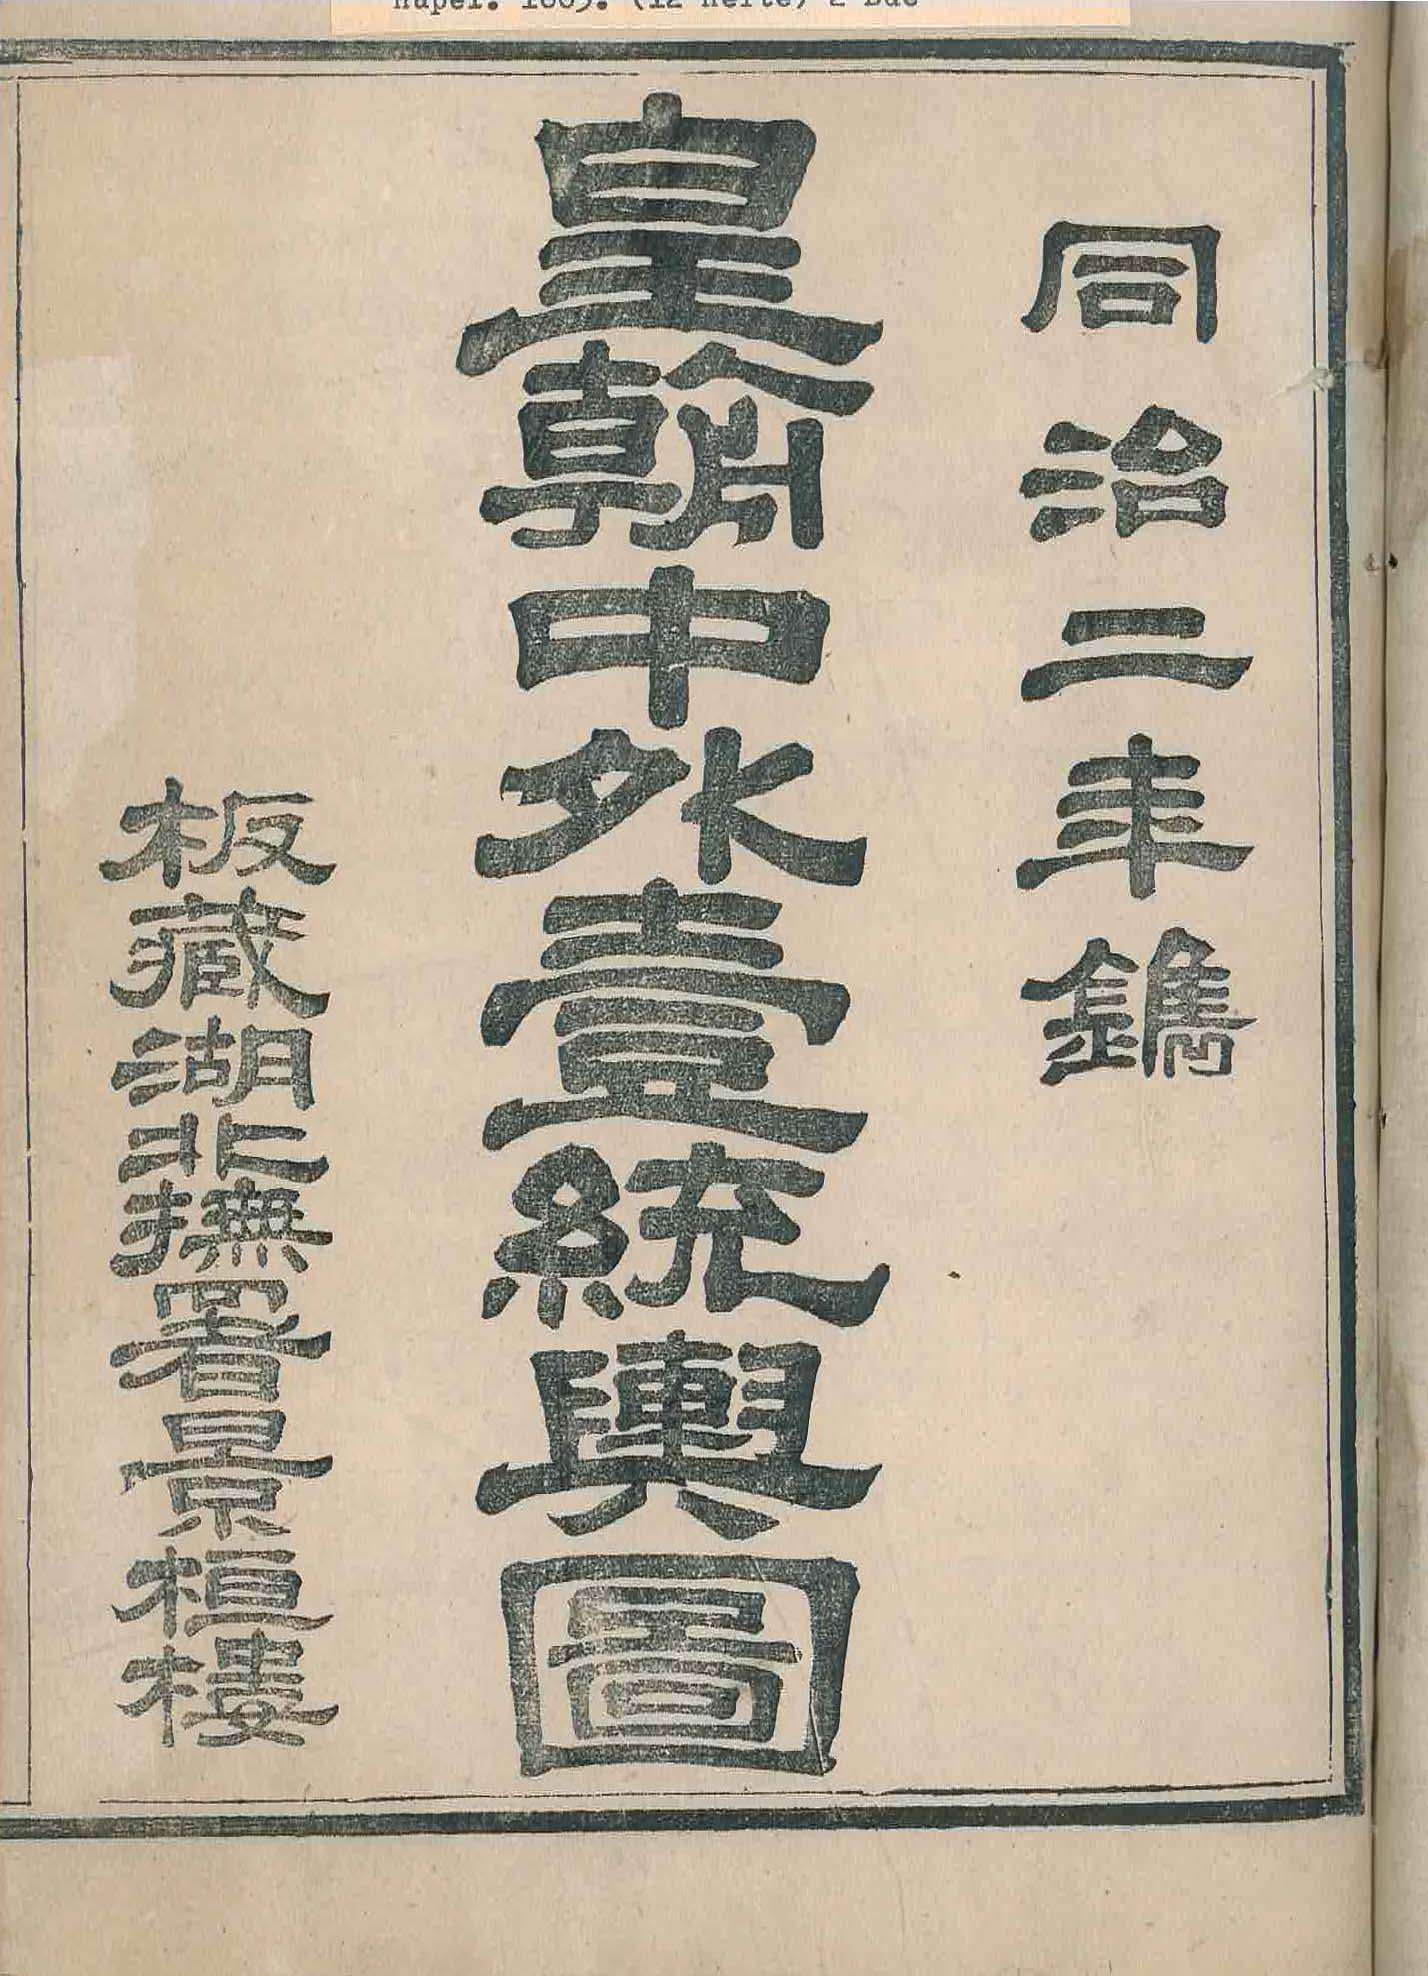 Hupei. 1863. (12 Hefte) 2 Bde
同治二年鐫
皇朝中外壹統輿圖
板藏湖北撫署景桓樓